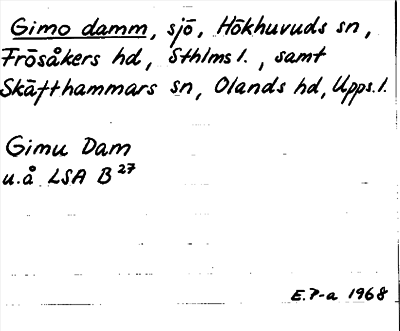 Gimo damm, sjö, Hökhuvuds sn,
Frösåkers hd, Sthlms l., samt
Skäfthammars sn, Olands hd, Upps. l.
Gimu Dam
u.å LSA B 27
E.P-a 1968